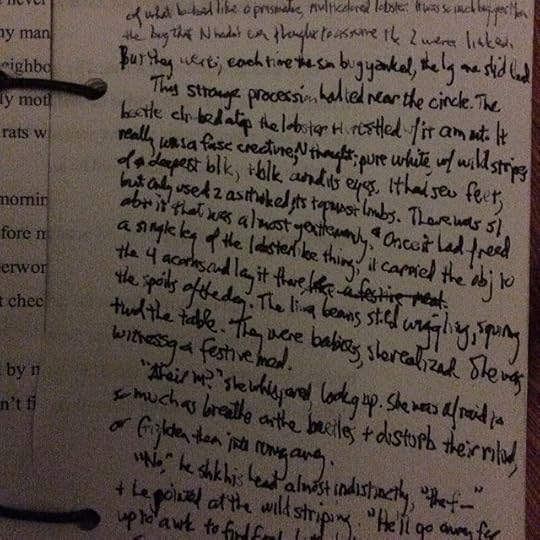 never
ny man
neighbo
ly moth
rats w
mornin
fore m
erwor
t chec
by n
n't fi
of what looked like a prismatic, multicolored lobster. It was so much bigger than
the bug that N hadn't even thought to assume the 2 were linked.
But they were; each time the sm bug yanked, the lg one slid
This strange procession halted near the circle. The
beetle climbed atop the lobster + rustled w/ it a minute. It
really was a fasc creature, N thought; pure white, w/ wild stripes
of deepest blk, + blk around its eyes. It had sev feet,
but only used 2 as it walked, its topmost limbs. There was s/
abt it that was almost gentlemanly. Once it had freed
a single leg of the lobsterlike thing, it carried the obj to
the 4 acorns and lay it there like a festive meal
the spoils of the day. The lima beans started wiggling, squirming
twd the table. They were babies, she realized. She was
witnessg a festive meal.
she whispered, lookg up. She was afraid to
so much as breathe on the beetles + disturb their ritual,
or frighten them into rung away.
"No," he shk his head almost indistinctly, "the f—"
+ he pointed at the wild striping. "He'll go away for
up to a wk to find food